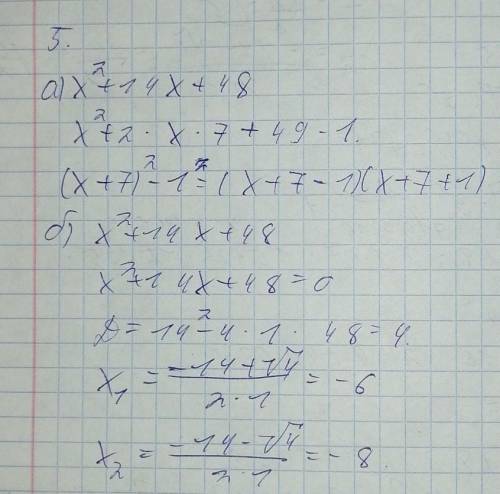 5.
а) x² + 14x + 48
x² + 2 · x · 7 + 49 - 1.
(x + 7)² - 1² = (x + 7 - 1)(x + 7 + 1)
б) x² + 14x + 48
x² + 14x + 48 = 0
D = 14² - 4 · 1 · 48 = 4.
x₁ = (-14 + √4) / (2 · 1) = -6
x₂ = (-14 - √4) / (2 · 1) = -8.